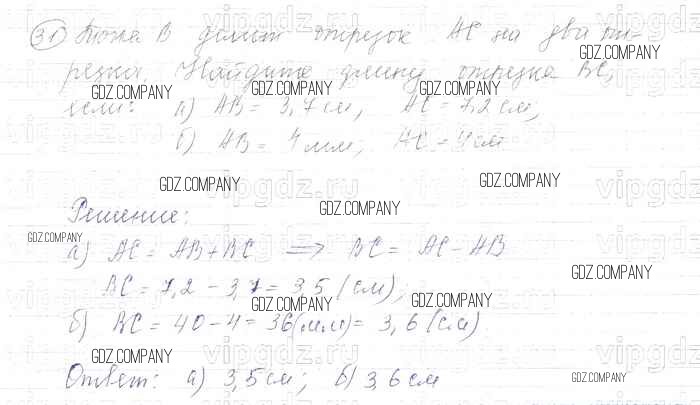 31 Точка В делит отрезок АС на два от-
резка. Найдите длину отрезка ВС,
если: а) АВ = 3,7 см, АС = 7,2 см;
б) АВ = 4 мм; АС = 4 см
Решение:
а) АС = АВ + ВС => ВС = АС - АВ
ВС = 7,2 - 3,7 = 3,5 (см),
б) ВС = 40 - 4 = 36 (мм) = 3,6 (см)
Ответ: а) 3,5 см; б) 3,6 см
GDZ.COMPANY
vipgdz.ru